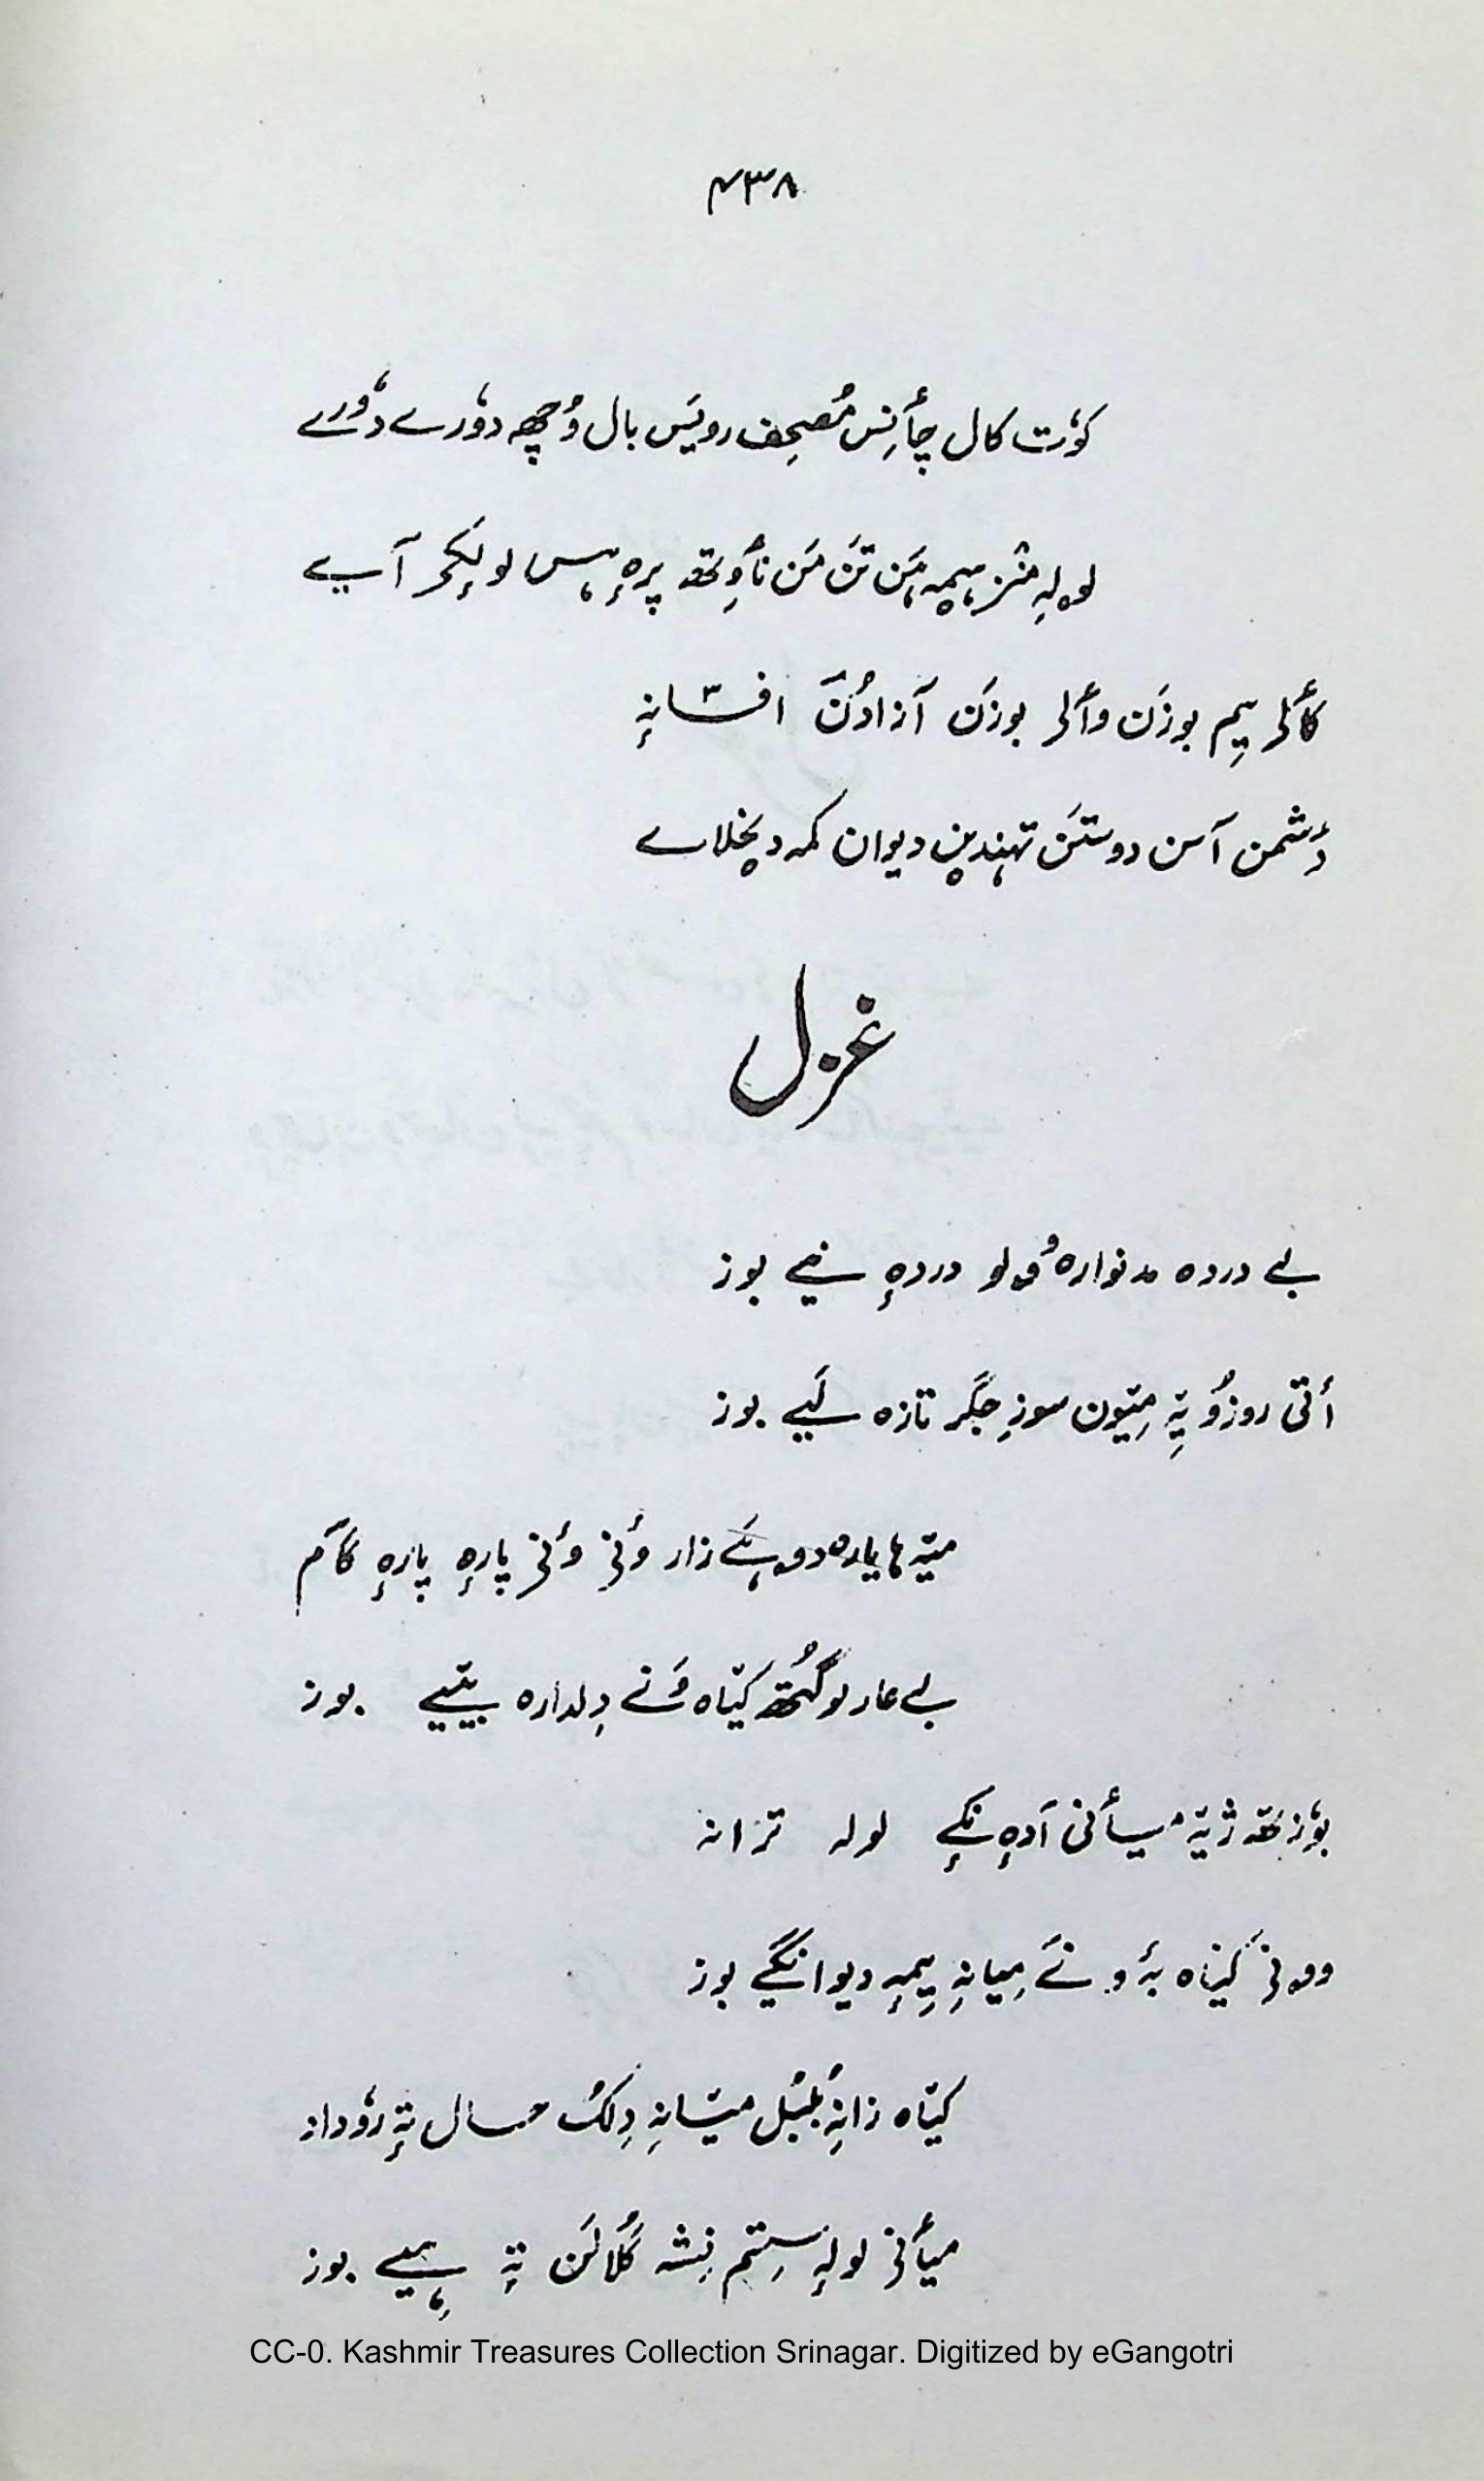 ۴۳۸
کوٗت کال چأنِس مُصحِف رویَس بال وُچھہ دوٗرے دوٗرے
لولہِ منٛز ہیمہ ہَن تَن مَن نٲوِتھ پرٕہ ہس لولٕکۍ آیے
کألۍ یِم بوزَن وألۍ بوزَن آزادُنَ افسانہٕ
دُشمن آسن دوستَن تہندین دیوان کمہ دیخلاے
غزل
بے دردہ مدنوارہ مۄلو دردہٕ نیے بوز
أتی روزُو یتہِ میٚون سوزِ جگر تازہ لَیے بوز
میٚتہ ہا یارہ دوہَے زار وٕنۍ وٕنۍ پارہٕ پارہٕ گأم
بے عار لوگُتھ کیٚاہ وَنے دِلدارہ بیٚیے بوز
بوٗزتھ ژیٚتہ میأنی آدہٕ نٕکۍ لولہ ترانہ
وونۍ کیٚاہ بہٕ ونَے مِیانہِ یِمہٕ دیوانگیے بوز
کیٚاہ زانہِ بُلبُل میٚانہِ دِلُک حال تہٕ روٗداد
میأنۍ لولہٕ سِتَم نِشہ گُلالَن تہٕ ہِیے بوز
CC-0. Kashmir Treasures Collection Srinagar. Digitized by eGangotri